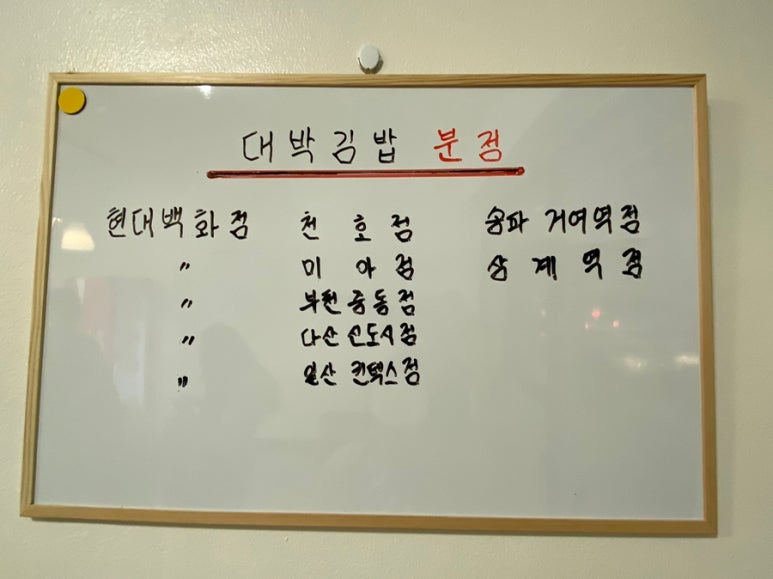 대박김밥 분점
현대백화점 천호점 송파 거여역점
〃 미아점 상계역점
〃 부천 중동점
〃 다산 신도시점
〃 일산 킨텍스점